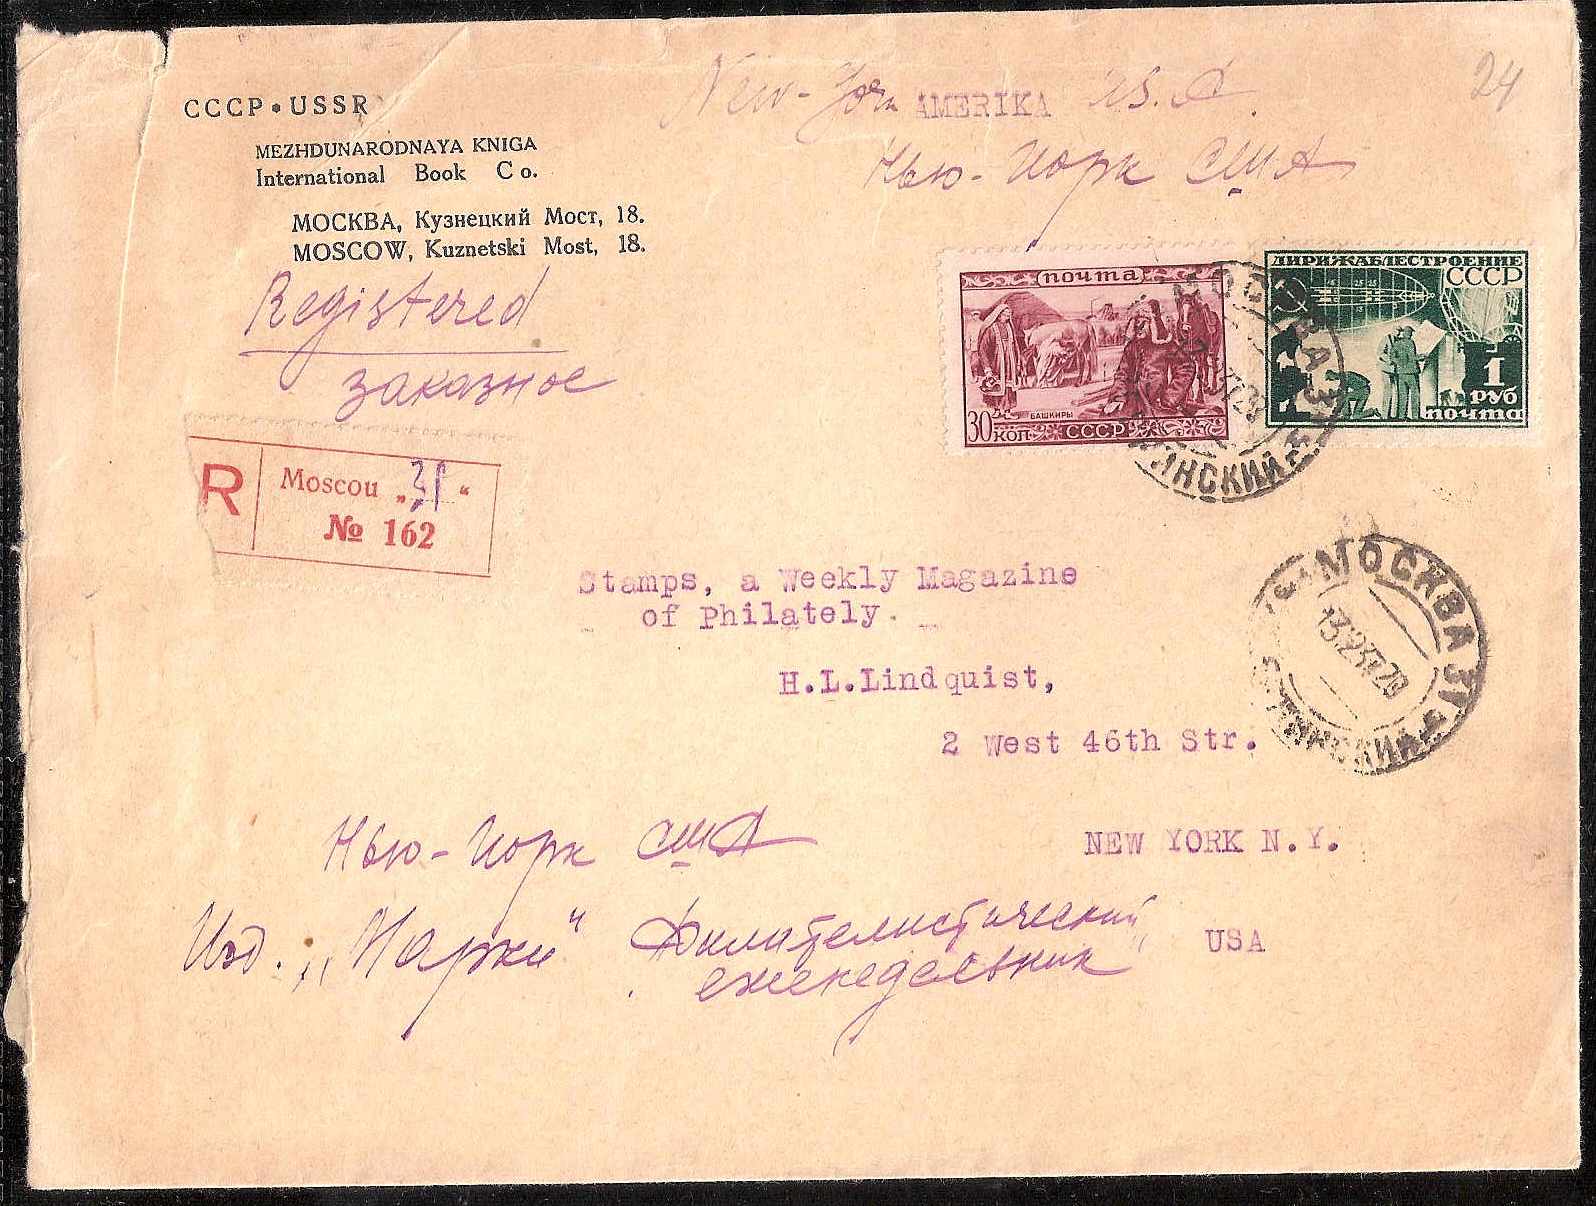 New-York AMERIKA U.S.A.
24
Нью-Йорк США
СССР • USSR
MEZHDUNARODNAYA KNIGA
International Book Co.
МОСКВА, Кузнецкий Мост, 18.
MOSCOW, Kuznetski Most, 18.
Registered
заказное
ПОЧТА
БАШКИРЫ
30 КОП СССР
ДИРИЖАБЛЕСТРОЕНИЕ
СССР
1
РУБ
ПОЧТА
R
Moscou „31“
№ 162
Stamps, a Weekly Magazine
of Philately.
МОСКВА 31
H.L.Lindquist,
2 West 46th Str.
NEW YORK N.Y.
USA
Нью-Йорк США
Изд. „Марки“ Филателистический
еженедельник